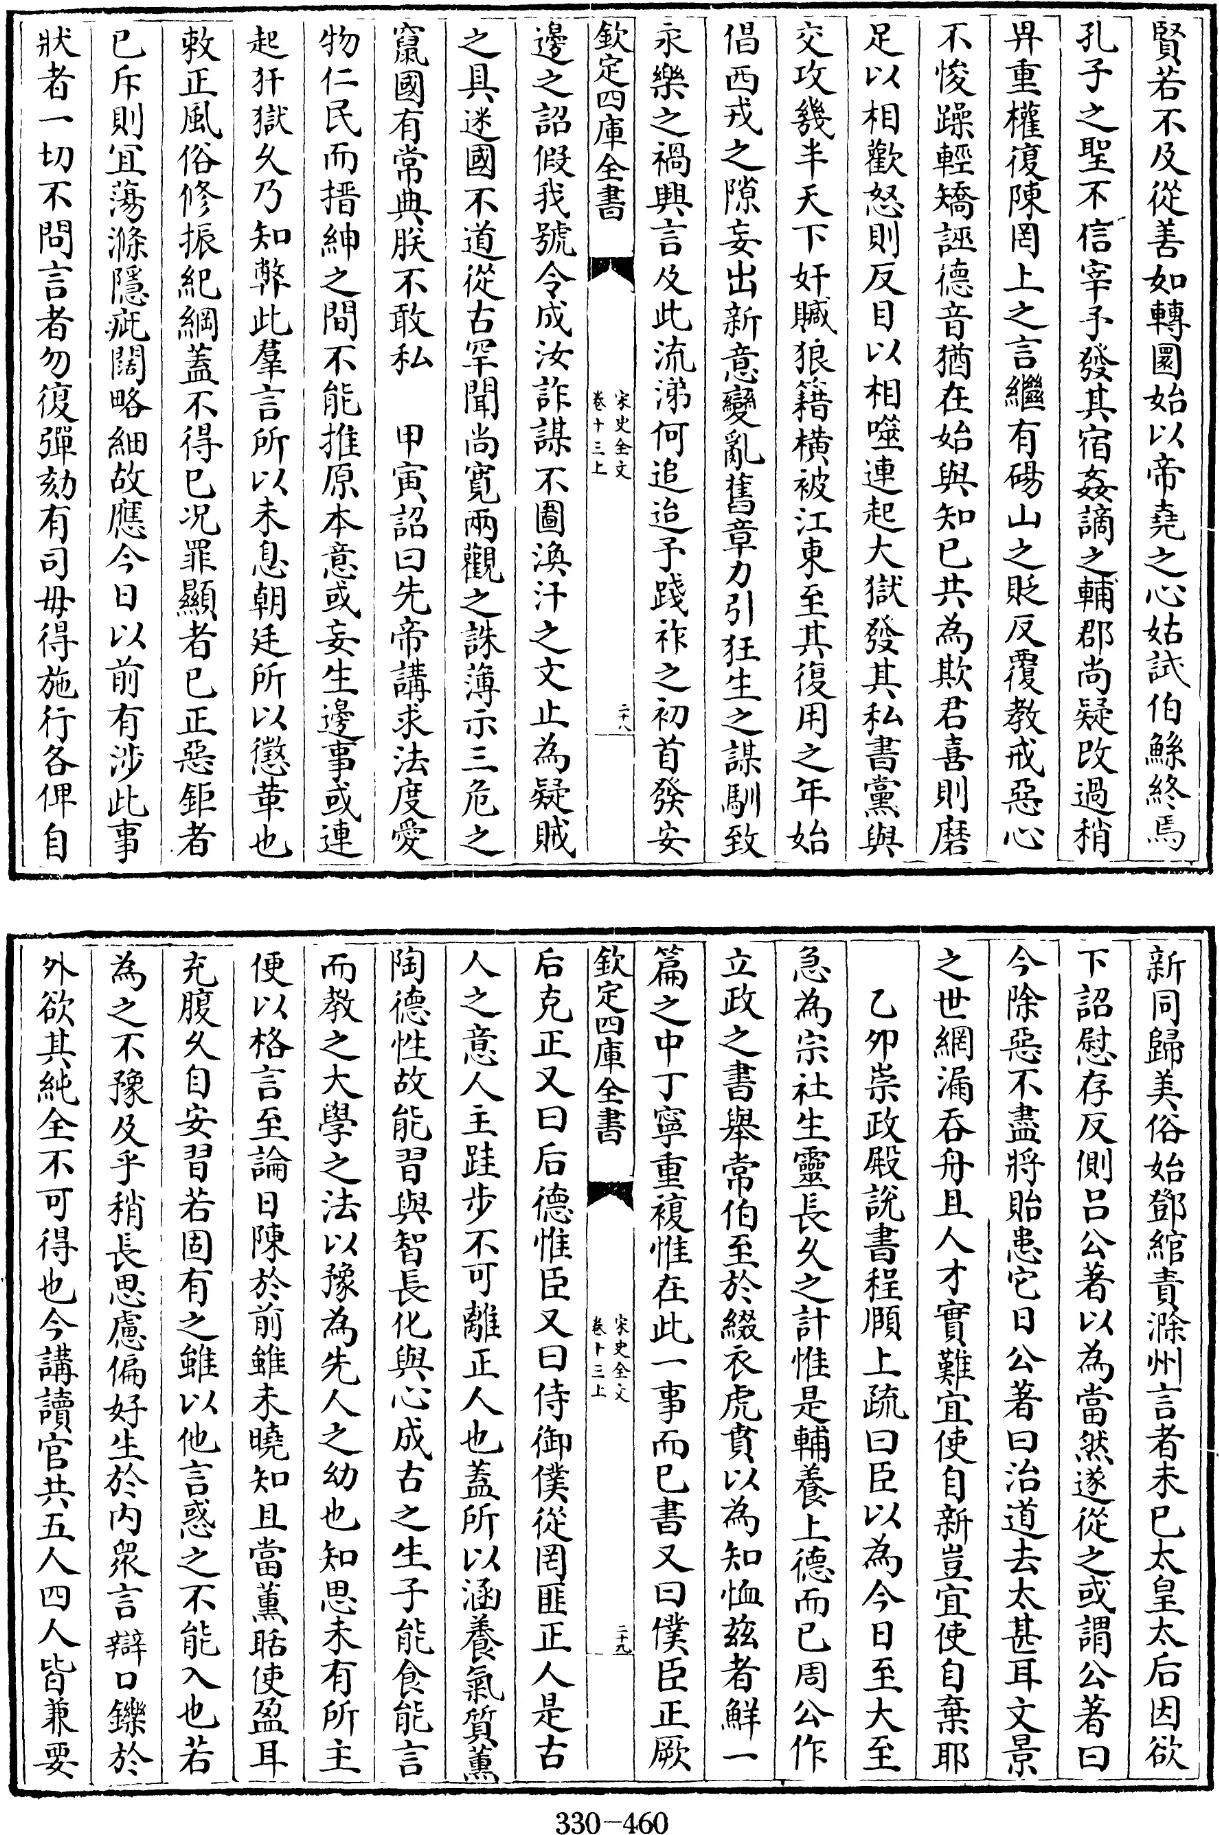 賢若不及從善如轉圜始以帝堯之心姑試伯鯀終焉
孔子之聖不信宰予發其宿姦謫之輔郡尚疑改過稍
畀重權復陳罔上之言繼有碭山之貶反覆教戒惡心
不悛躁輕矯誣德音猶在始與知已共為欺君喜則磨
足以相歡怒則反目以相噬連起大獄發其私書黨與
交攻幾半天下奸贓狼籍橫被江東至其復用之年始
倡西戎之隙妄出新意變亂舊章力引狂生之謀馴致
永樂之禍興言及此流涕何追迨予踐祚之初首發安
欽定四庫全書
宋史全文
卷十三上
二十八
邊之詔假我號令成汝詐謀不圖渙汗之文止為疑賊
之具迷國不道從古罕聞尚寬兩觀之誅薄示三危之
竄國有常典朕不敢私 甲寅詔曰先帝講求法度愛
物仁民而搢紳之間不能推原本意或妄生邊事或連
起犴獄久乃知弊此羣言所以未息朝廷所以懲革也
敕正風俗修振紀綱蓋不得已况罪顯者已正惡鉅者
已斥則宜蕩滌隱疵闊略細故應今日以前有涉此事
狀者一切不問言者勿復彈劾有司毋得施行各俾自
新同歸美俗始鄧綰責滁州言者未已太皇太后因欲
下詔慰存反側吕公著以為當然遂從之或謂公著曰
今除惡不盡將貽患它日公著曰治道去太甚耳文景
之世網漏吞舟且人才實難宜使自新豈宜使自棄耶
乙卯崇政殿說書程頤上疏曰臣以為今日至大至
急為宗社生靈長久之計惟是輔養上德而已周公作
立政之書舉常伯至於綴衣虎賁以為知恤兹者鮮一
篇之中丁寧重複惟在此一事而已書又曰僕臣正厥
欽定四庫全書
宋史全文
卷十三上
二十九
后克正又曰后德惟臣又曰侍御僕從罔匪正人是古
人之意人主跬步不可離正人也蓋所以涵養氣質薰
陶德性故能習與智長化與心成古之生子能食能言
而教之大學之法以豫為先人之幼也知思未有所主
便以格言至論日陳於前雖未曉知且當薰聒使盈耳
充腹久自安習若固有之雖以他言惑之不能入也若
為之不豫及乎稍長思慮偏好生於内衆言辯口鑠於
外欲其純全不可得也今講讀官共五人四人皆兼要
330-460